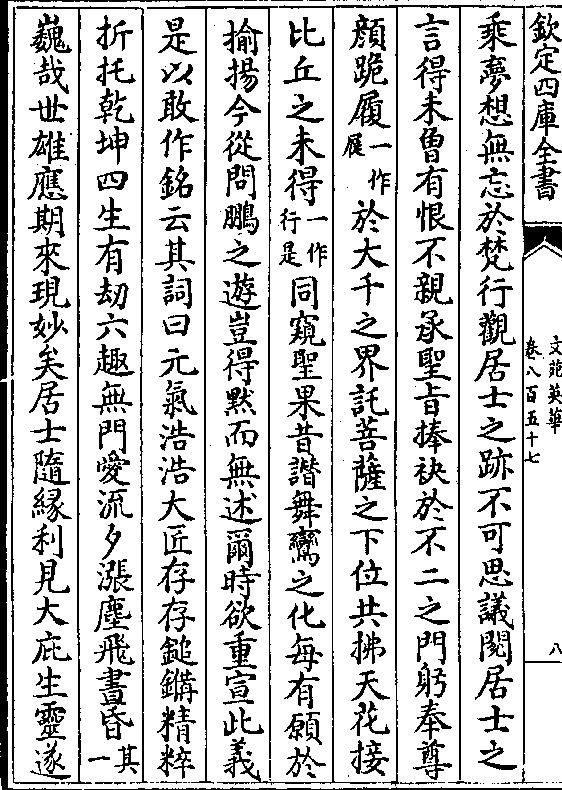 欽定四庫全書
文苑英華
卷八百五十七
八
乘夢想無忘於梵行觀居士之跡不可思議閱居士之
言得未曾有恨不親承聖旨捧袂於不二之門躬奉尊
顔跪履一作屐於大千之界託菩薩之下位共拂天花接
比丘之未得一作行是同窺聖果昔諧舞鸞之化每有願於
揄揚今從問鵬之遊豈得黙而無述爾時欲重宣此義
是以敢作銘云其詞曰元氣浩浩大匠存存鎚鐫精粹
折托乾坤四生有劫六趣無門愛流夕漲塵飛晝昏其一
巍哉世雄應期來現妙矣居士隨縁利見大庇生靈遂